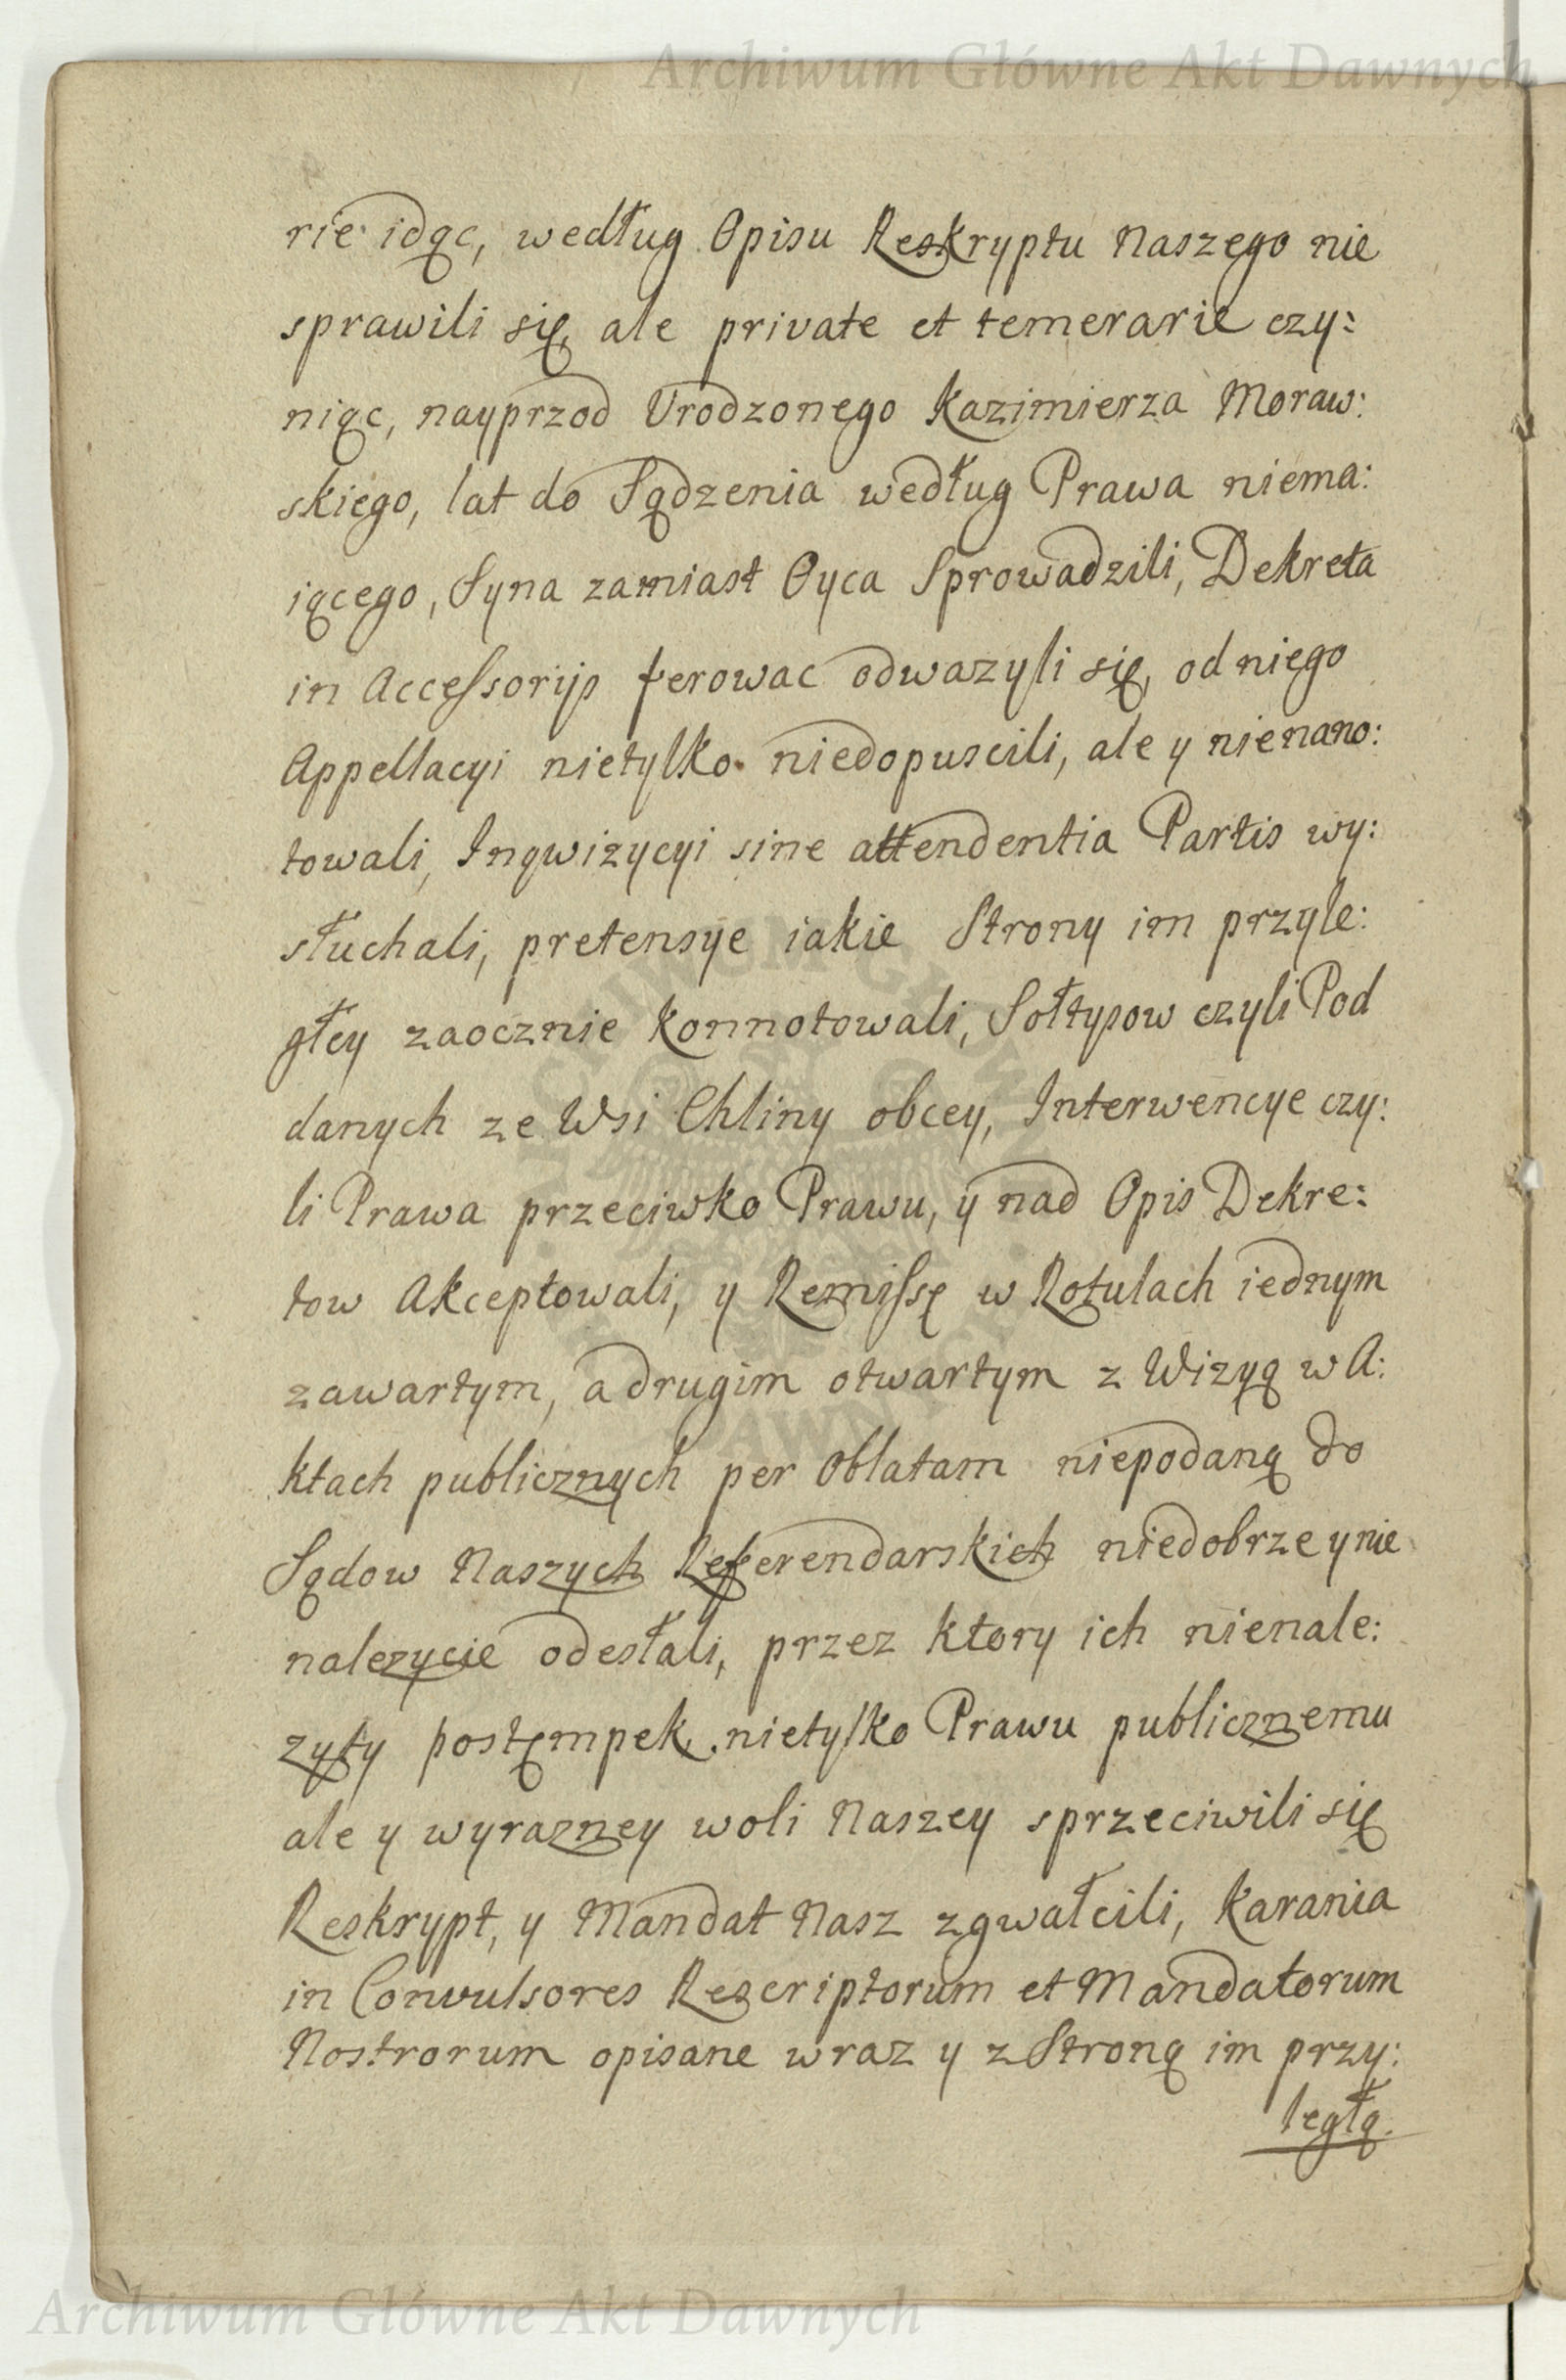 Archiwum Główne Akt Dawnych
rie idąc, według Opisu Reskryptu Naszego nie
sprawili się, ale private et temerarie czy:
niąc, nayprzod Urodzonego Kazimierza Moraw:
skiego, lat do Sądzenia według Prawa niema:
iącego, Syna zamiast Oyca Sprowadzili, Dekreta
in Accessorijs ferowac odwazyli się, od niego
Appellacyi nietylko niedopuscili, ale y nienano:
towali, Inqwizycyi sine attendentia Partis wy:
słuchali, pretensye iakie Strony im przyle:
głey zaocznie konnotowali, Sołtysow czyli Pod
danych ze Wsi Chliny obcey, Interwencye czy:
li Prawa przeciwko Prawu, y nad Opis Dekre:
tow Akceptowali, y Remissę w Rotulach iednym
zawartym, a drugim otwartym z Wizyą w A:
ktach publicznych per Oblatam niepodaną do
Sądow Naszych Referendarskich niedobrze y nie
nalezycie odesłali, przez ktory ich nienale:
zyty postempek nietylko Prawu publicznemu
ale y wyrazney woli Naszey sprzeciwili się
Reskrypt, y Mandat Nasz zgwałcili, karania
in Convulsores Rescriptorum et Mandatorum
Nostrorum opisane wraz y z Stroną im przy:
ległą.
Archiwum Główne Akt Dawnych